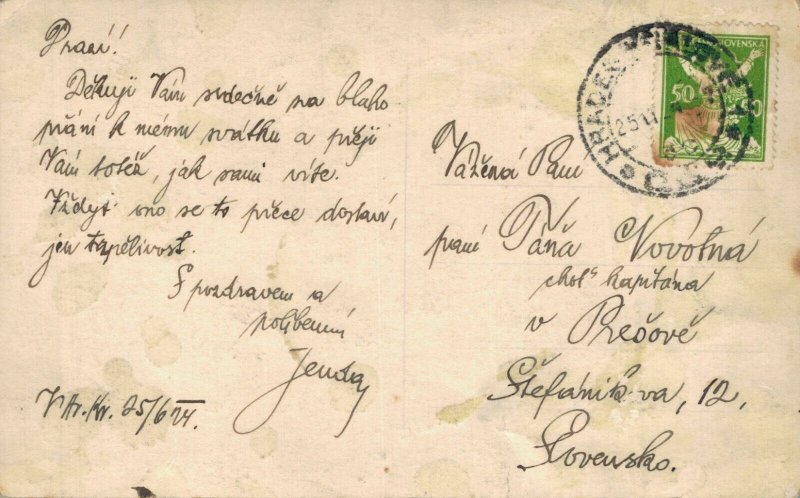 Praní!
Děkuji Vám srdečně na blaho
přání k mému svátku a přeji
Vám totéž, jak sami víte.
Vždyť ono se to přece dostaví,
jen trpělivost.
S pozdravem a
políbením
Jenda
V Hr. Kr. 25/6 24.
HRADEC KRÁLOVÉ
25 VI
ČSR
SLOVENSKÁ
50
Vážená Paní
paní Táňa Novotná
choť kapitána
v Prešově
Štefánikova, 12,
Slovensko.